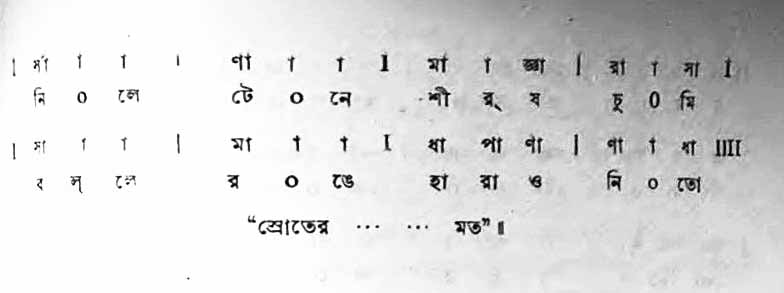 | র্সা া া । ণা া া I মা া জ্ঞা | রা া সা I
নি ০ লে টে ০ নে শী র্ ষ চু ০ মি
| সা া া | মা া া I ধা পা ণা | ণা া ধা IIII
ব ল্ লে ব্র ০ ঙে হা রা ও নি ০ তো
“স্রোতের ··· ··· মত”॥